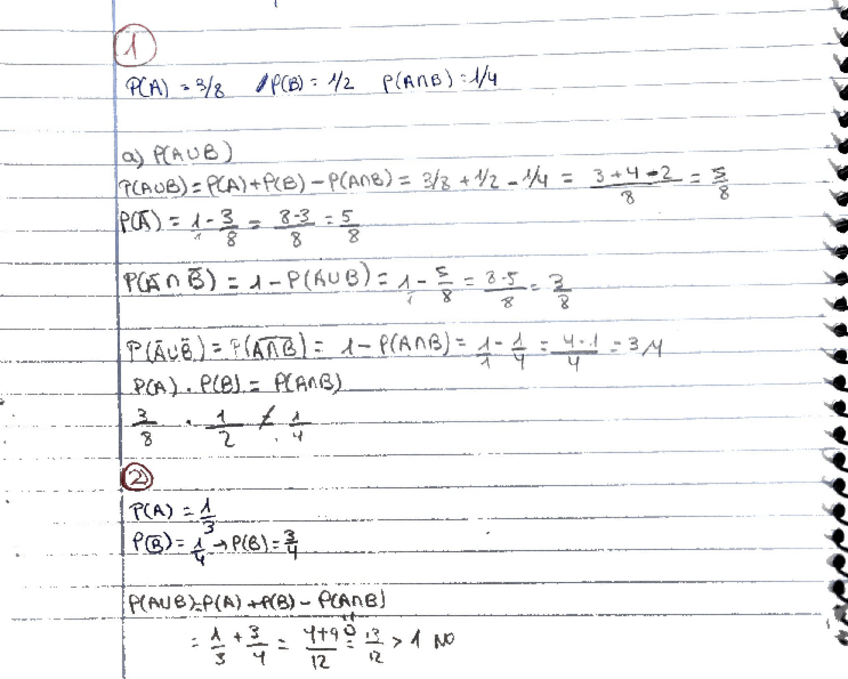 1
P(A) = 3/8 P(B) = 1/2 P(A∩B) = 1/4
a) P(A∪B)
P(A∪B) = P(A) + P(B) - P(A∩B) = 3/8 + 1/2 - 1/4 = (3+4-2)/8 = 5/8
P(A̅) = 1/1 - 3/8 = (8-3)/8 = 5/8
P(A̅ ∩ B̅) = 1 - P(A∪B) = 1/1 - 5/8 = (8-5)/8 = 3/8
P(A̅∪B̅) = P(A̅∩̅B̅) = 1 - P(A∩B) = 1/1 - 1/4 = (4-1)/4 = 3/4
P(A) . P(B) = P(A∩B)
3/8 . 1/2 ≠ 1/4
2
P(A) = 1/3
P(B̅) = 1/4 → P(B) = 3/4
P(A∪B) = P(A) + P(B) - P(A∩B)
= 1/3 + 3/4 = (4+9)/12 = 13/12 > 1 NO